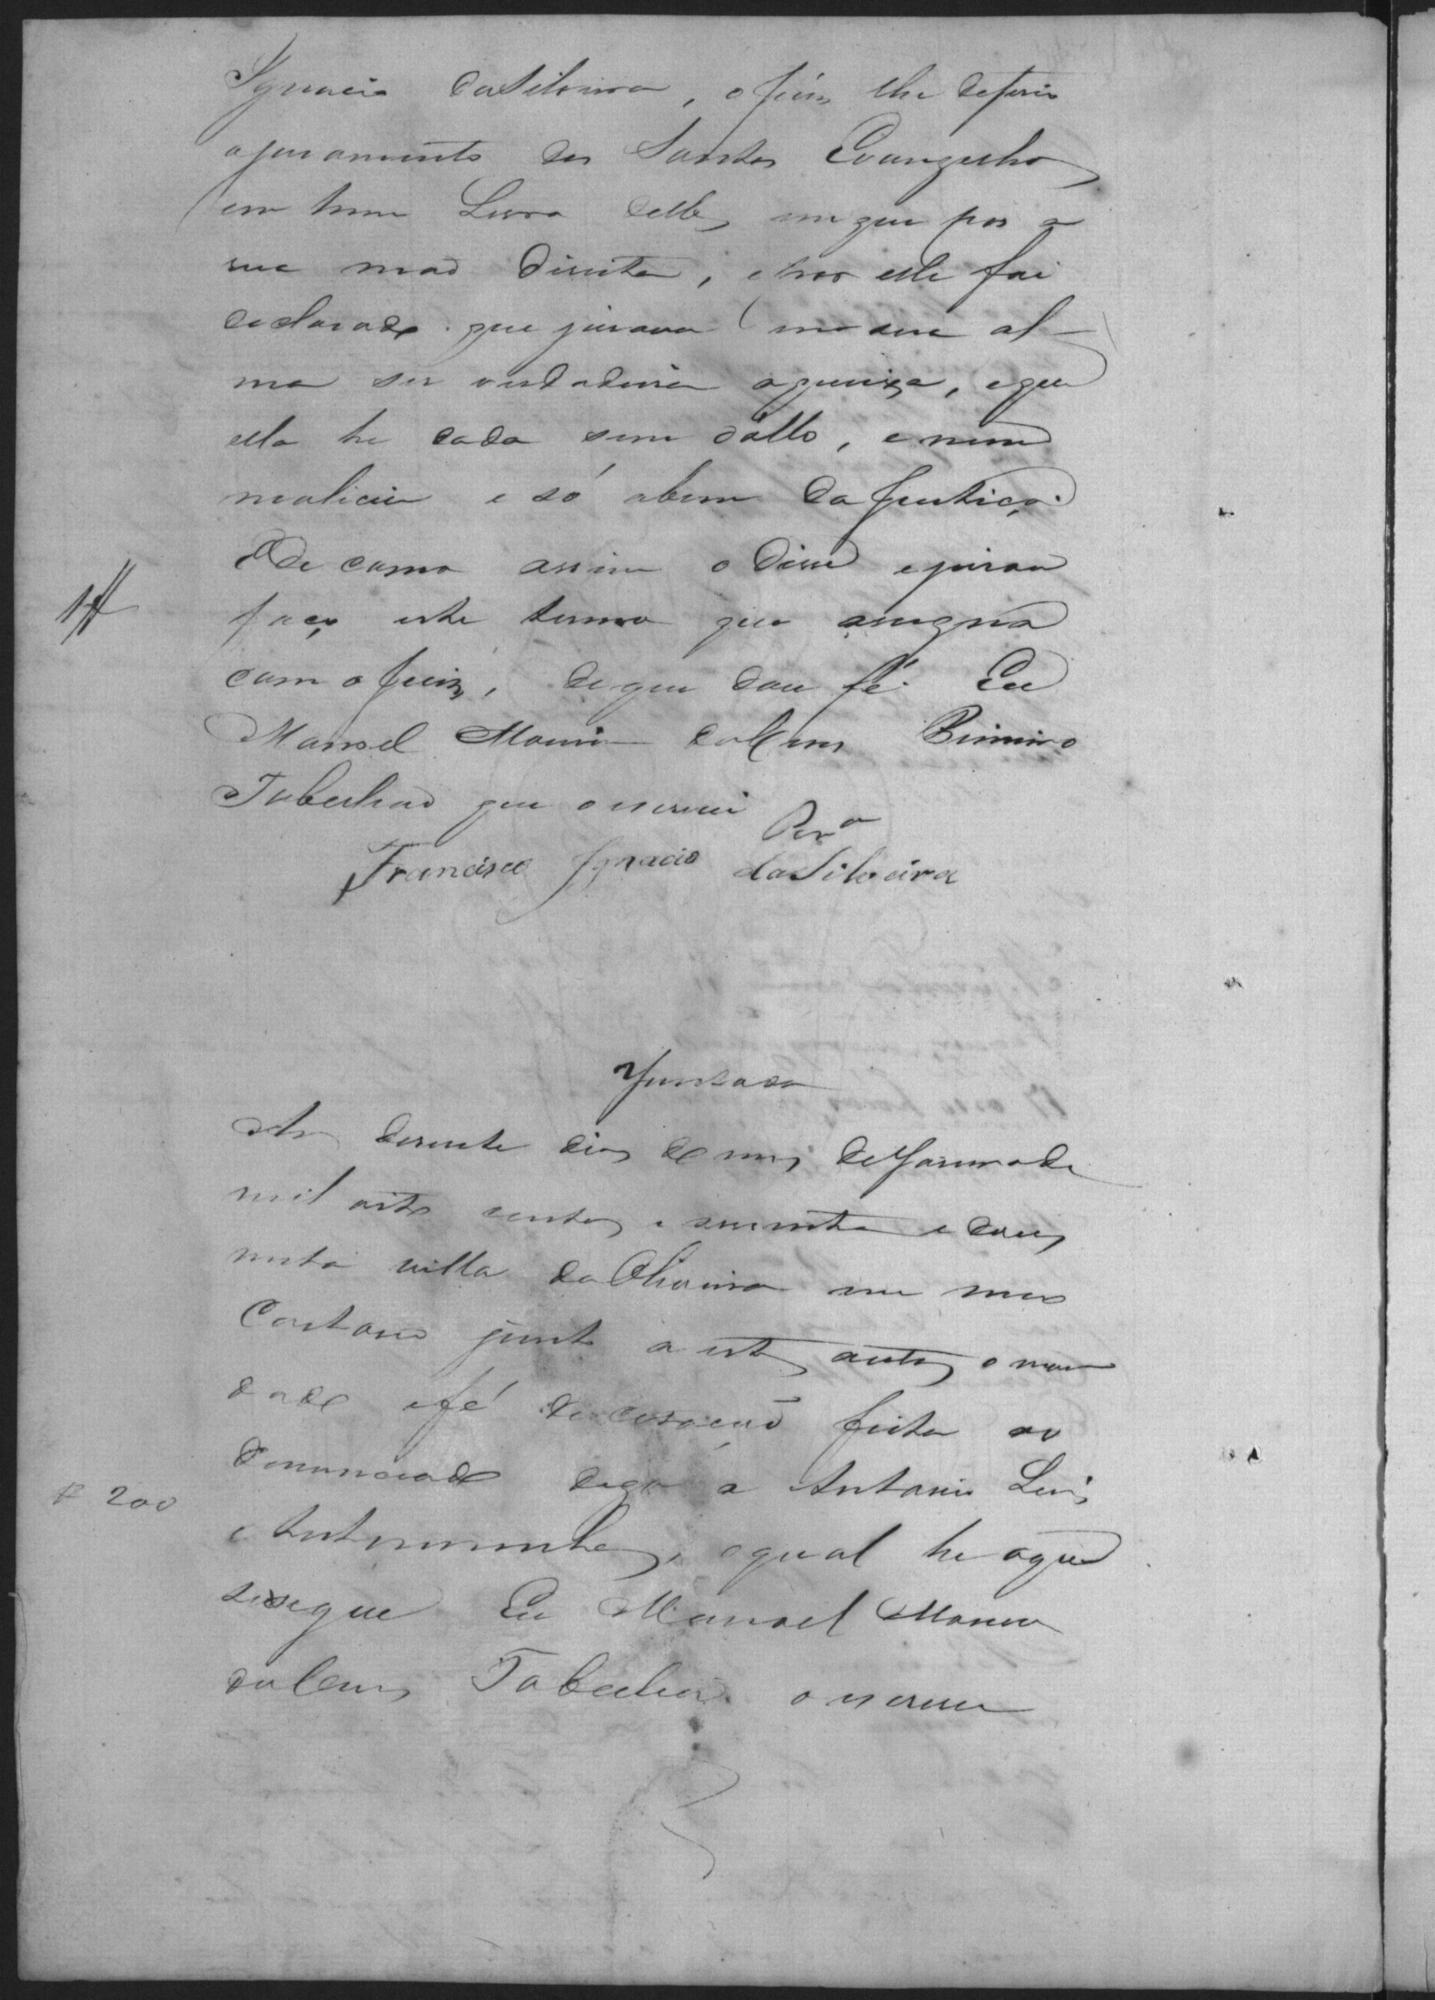 Ignacio da Silveira, o Juiz lhe deferio
o juramento dos Santos Evangelhos
em hum Livro delles em que pos a
sua mao direita, e por elle foi
declarado que jurava em sua al-
ma ser verdadeira a queixa, e que
ella he dada sem dollo, e nem
malicia e só a bem da Justiça.
E de como assim o disse e jurou
faço este termo que assigna
com o Juiz, de que dou fé. Eu
Manoel Maria da Cruz
Tabeliao que o escrevi
Per.ª
Francisco Ignacio da Silveira
Juntada
Aos dias do mes de Janeiro de
mil oito centos e secenta e dous
nesta villa da Oliveira em meu
Cartorio junto a estes autos o man
dado e fé de citação feita ao
denunciado digo a Antonio Luis
e testemunhas, o qual he o que
se segue Eu Manoel Maria
da Cruz Tabeliao o escrevi
200